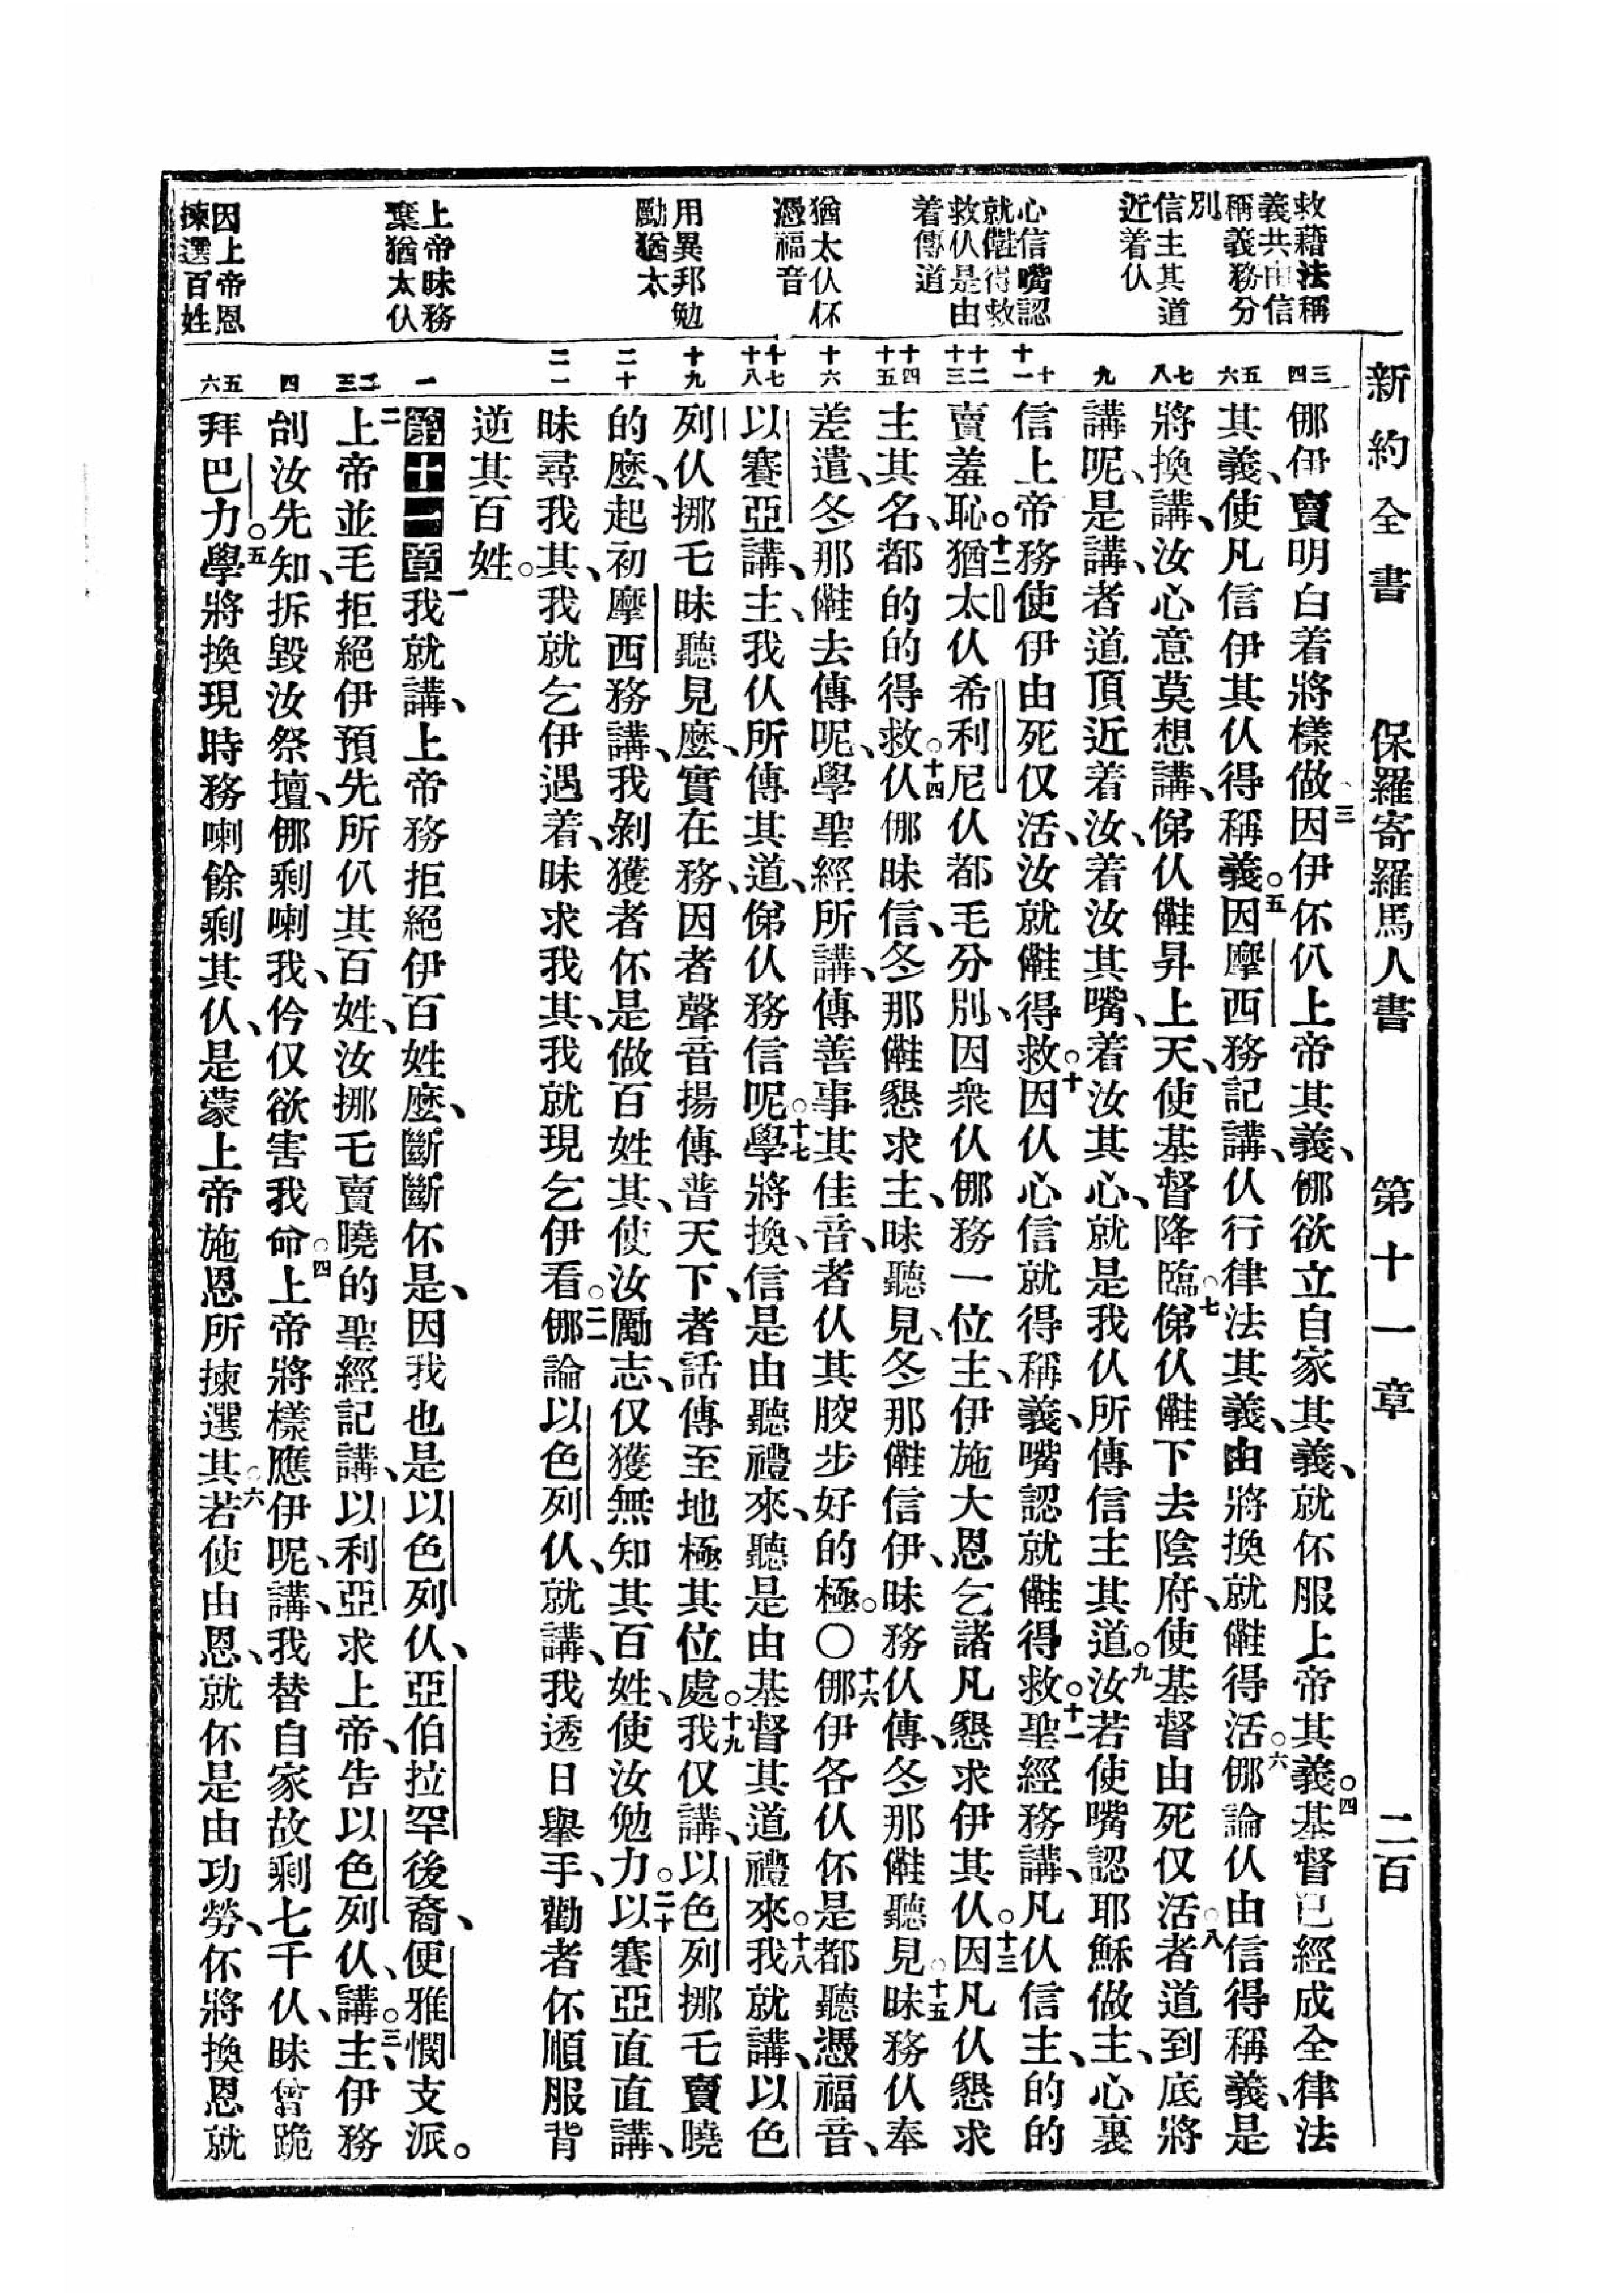 新約全書　保羅寄羅馬人書　第十一章　二百
救藉法稱
義共由信
稱義務分
別
信主其道
近着仈
心信嘴認
就㒕得救
救仈是由
着傳道
猶太仈伓
憑福音
用異邦勉
勵猶太
上帝昧務
棄猶太仈
因上帝恩
揀選百姓
三 四 五 六 七 八 九 十 十一 十二 十三 十四 十五 十六 十七 十八 十九 二十 二一 一 二 三 四 五 六
㑚伊賣明白着將樣做、三因伊伓仈上帝其義、㑚欲立自家其義、就伓服上帝其義。四基督已經成全律法
其義、使凡信伊其仈得稱義。五因摩西務記講、仈行律法其義、由將換就㒕得活。六㑚論仈由信得稱義、是
將換講、汝心意莫想講、俤仈㒕昇上天、使基督降臨。七俤仈㒕下去陰府、使基督由死仅活。八者道到底將
講呢、是講、者道頂近着汝、着汝其嘴、着汝其心、就是我仈所傳信主其道。九汝若使嘴認耶穌做主、心裏
信上帝務使伊由死仅活、汝就㒕得救。十因仈心信就得稱義、嘴認就㒕得救。十一聖經務講、凡仈信主、的的
賣羞恥。十二猶太仈希利尼仈都毛分別、因衆仈㑚務一位主、伊施大恩乞諸凡懇求伊其仈。十三因凡仈懇求
主其名、都的的得救。十四仈㑚昧信、冬那㒕懇求主、昧聽見、冬那㒕信伊、昧務仈傳、冬那㒕聽見。十五昧務仈奉
差遣、冬那㒕去傳呢、學聖經所講、傳善事其佳音、者仈其骹步好的極。○十六㑚伊各仈伓是都聽憑福音、
以賽亞講、主、我仈所傳其道、俤仈務信呢。十七學將換、信是由聽禮來、聽是由基督其道禮來。十八我就講、以色
列仈挪乇昧聽見麽、實在務、因者聲音揚傳普天下、者話傳至地極其位處。十九我仅講、以色列挪乇賣曉
的麽、起初摩西務講、我剝獲者伓是做百姓其、使汝勵志、仅獲無知其百姓、使汝勉力。二十以賽亞直直講、
昧尋我其、我就乞伊遇着、昧求我其、我就現乞伊看。二一㑚論以色列仈、就講、我透日舉手、勸者伓順服背
逆其百姓。
第十一章一我就講、上帝務拒絕伊百姓麽、斷斷伓是、因我也是以色列仈、亞伯拉罕後裔、便雅憫支派。
二上帝並毛拒絕伊預先所仈其百姓、汝挪乇賣曉的聖經記講、以利亞求上帝、告以色列仈、講。三主、伊務
刣汝先知、拆毀汝祭壇、㑚剩喇我、仱仅欲害我命。四上帝將樣應伊呢、講、我替自家故剩七千仈、昧曾跪
拜巴力。五學將換現時務喇餘剩其仈、是蒙上帝施恩所揀選其。六若使由恩、就伓是由功勞、伓將換恩就